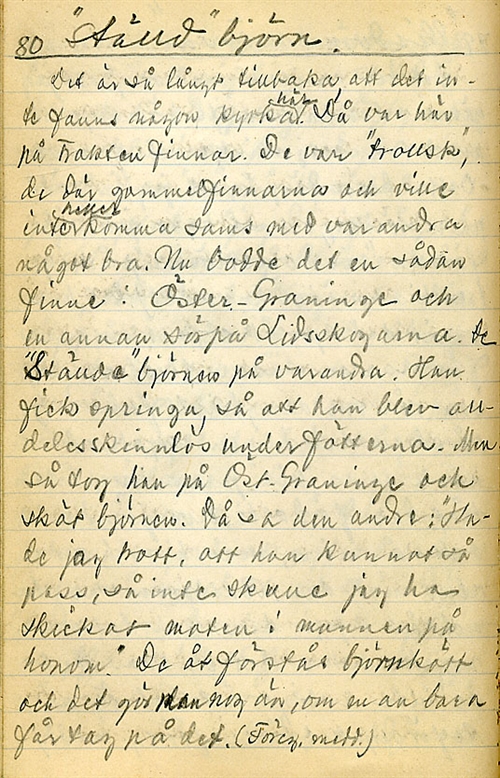 80 "Ställd" björn.
Det är så långt tillbaka, att det in-
te fanns någon kyrka här. Då var här
på trakten finnar. De var "trollsk",
de där gammelfinnarna och ville
inte heller komma sams med varandra
något bra. Nu bodde det en sådan
finne i Öster-Graninge och
en annan sörpå Lidsskogarna. De
"Stände" björnen på varandra. Han
fick springa, så att han blev all-
deles skinnlös under fötterna. Men
så tog han på Öst-Graninge och
sköt björnen. Då sa den andre: "Ha-
de jag trott, att han kunnat så
pass, så inte skulle jag ha
skickat maten i munnen på
honom." De åt förstås björnkött
och det gör dan nog än, om man bara
får tag på det. (Föreg. medd.)